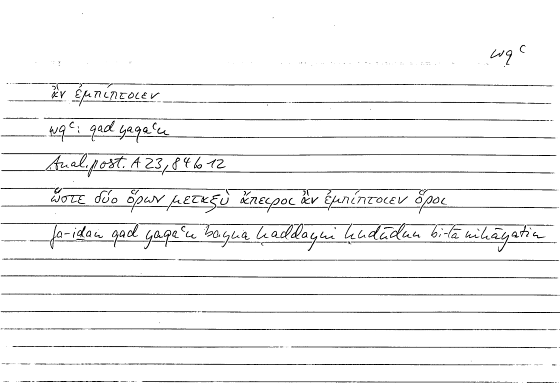 wqᶜ
ἂν ἐμπίπτοιεν
wqᶜ: qad yaqaᶜu
Anal. post. A 23, 84 b 12
ὥστε δύο ὅρων μεταξὺ ἄπειροι ἂν ἐμπίπτοιεν ὅροι
fa-iḏan qad yaqaᶜu bayna ḥaddayni ḥudūdun bi-lā nihāyatin